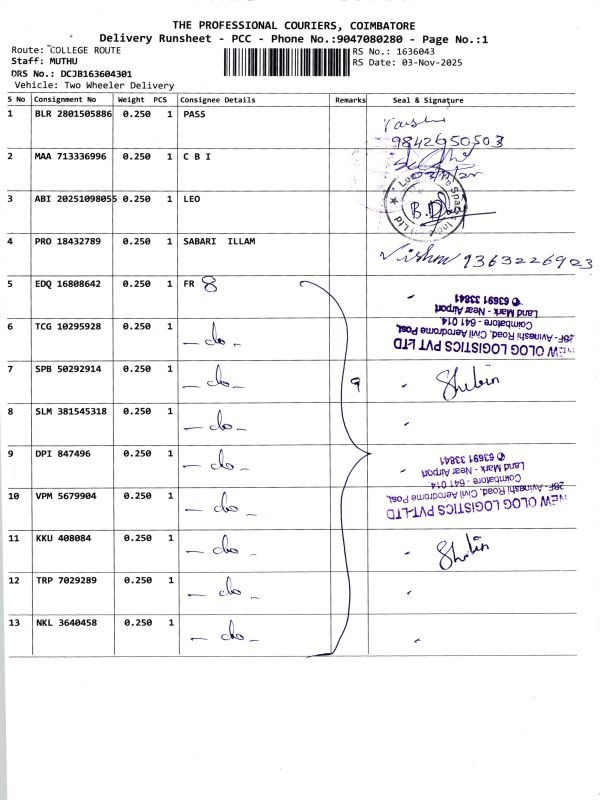 THE PROFESSIONAL COURIERS, COIMBATORE
Delivery Runsheet - PCC - Phone No.:9047080280 - Page No.:1
Route: COLLEGE ROUTE
RS No.: 1636043
Staff: MUTHU
RS Date: 03-Nov-2025
DRS No.: DCJB163604301
Vehicle: Two Wheeler Delivery
S No Consignment No Weight PCS Consignee Details Remarks Seal & Signature
1 BLR 2801505886 0.250 1 PASS
9842950503
2 MAA 713336996 0.250 1 C B I
3 ABI 20251098055 0.250 1 LEO
B.
4 PRO 18432789 0.250 1 SABARI ILLAM 9363226923
5 EDQ 16808642 0.250 1 FR 8
NEW OLOG LOGISTICS PVT LTD
28F- Avinashi Road, Civil Aerodrome Post,
Coimbatore - 641 014
Land Mark - Near Airport
✆ 63691 33841
6 TCG 10295928 0.250 1 - do -
7 SPB 50292914 0.250 1 - do - 9 Shibin
8 SLM 381545318 0.250 1 - do -
9 DPI 847496 0.250 1 - do -
NEW OLOG LOGISTICS PVT-LTD
28F- Avinashi Road, Civil Aerodrome Post,
Coimbatore - 641 014
Land Mark - Near Airport
✆ 63691 33841
10 VPM 5679904 0.250 1 - do -
11 KKU 408084 0.250 1 - do - Shibin
12 TRP 7029289 0.250 1 - do -
13 NKL 3640458 0.250 1 - do -